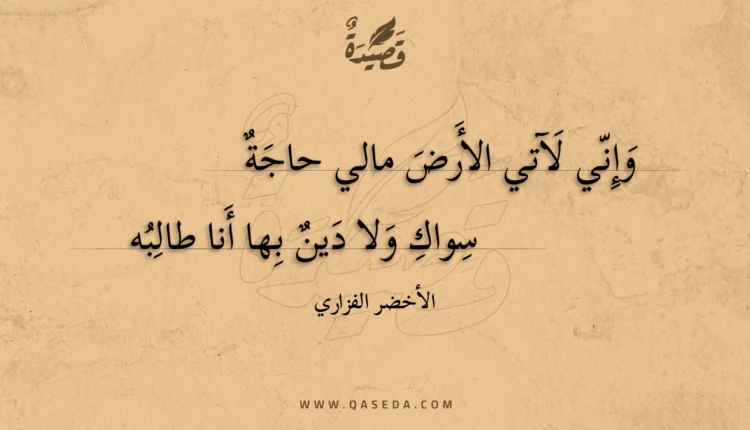 قَصِيْدَةٌ
وَإِنّي لَآتي الأَرضَ مالي حاجَةٌ
سِواكِ وَلا دَينٌ بِها أَنا طالِبُه
الأخضر الفزاري
WWW.QASEDA.COM